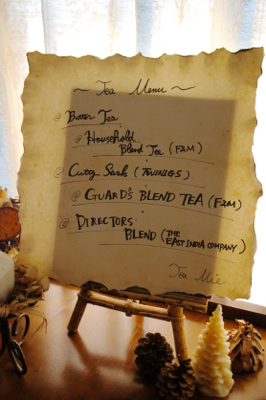 ~ Tea Menu ~
@ Butter Tea
@ Household
Blend Tea (F&M)
@ Cutty Sark (TWININGS)
@ GUARD'S BLEND TEA (F&M)
@ DIRECTORS
BLEND (THE
EAST INDIA COMPANY)
Tea Mie